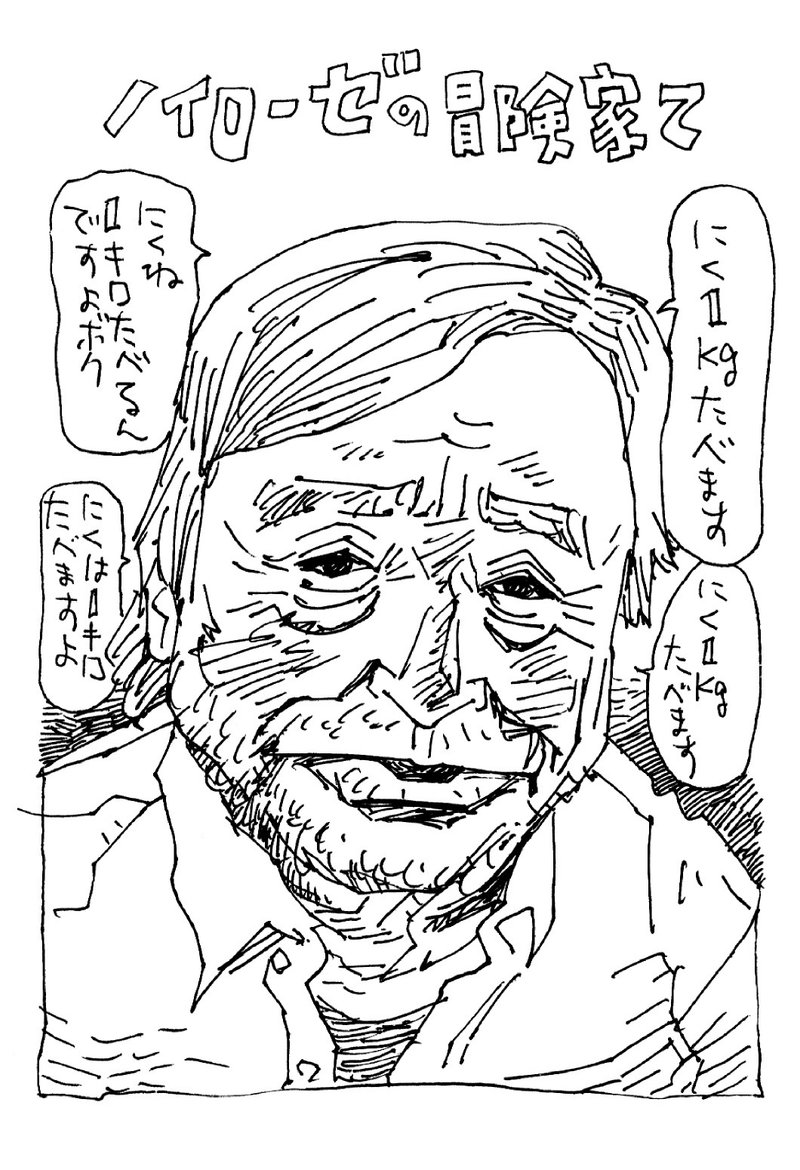 ノイローゼの冒険家て
にく1kgたべます
にく1kg
たべます
にくね
1キロたべるん
ですよボク
にくは1キロ
たべますよ